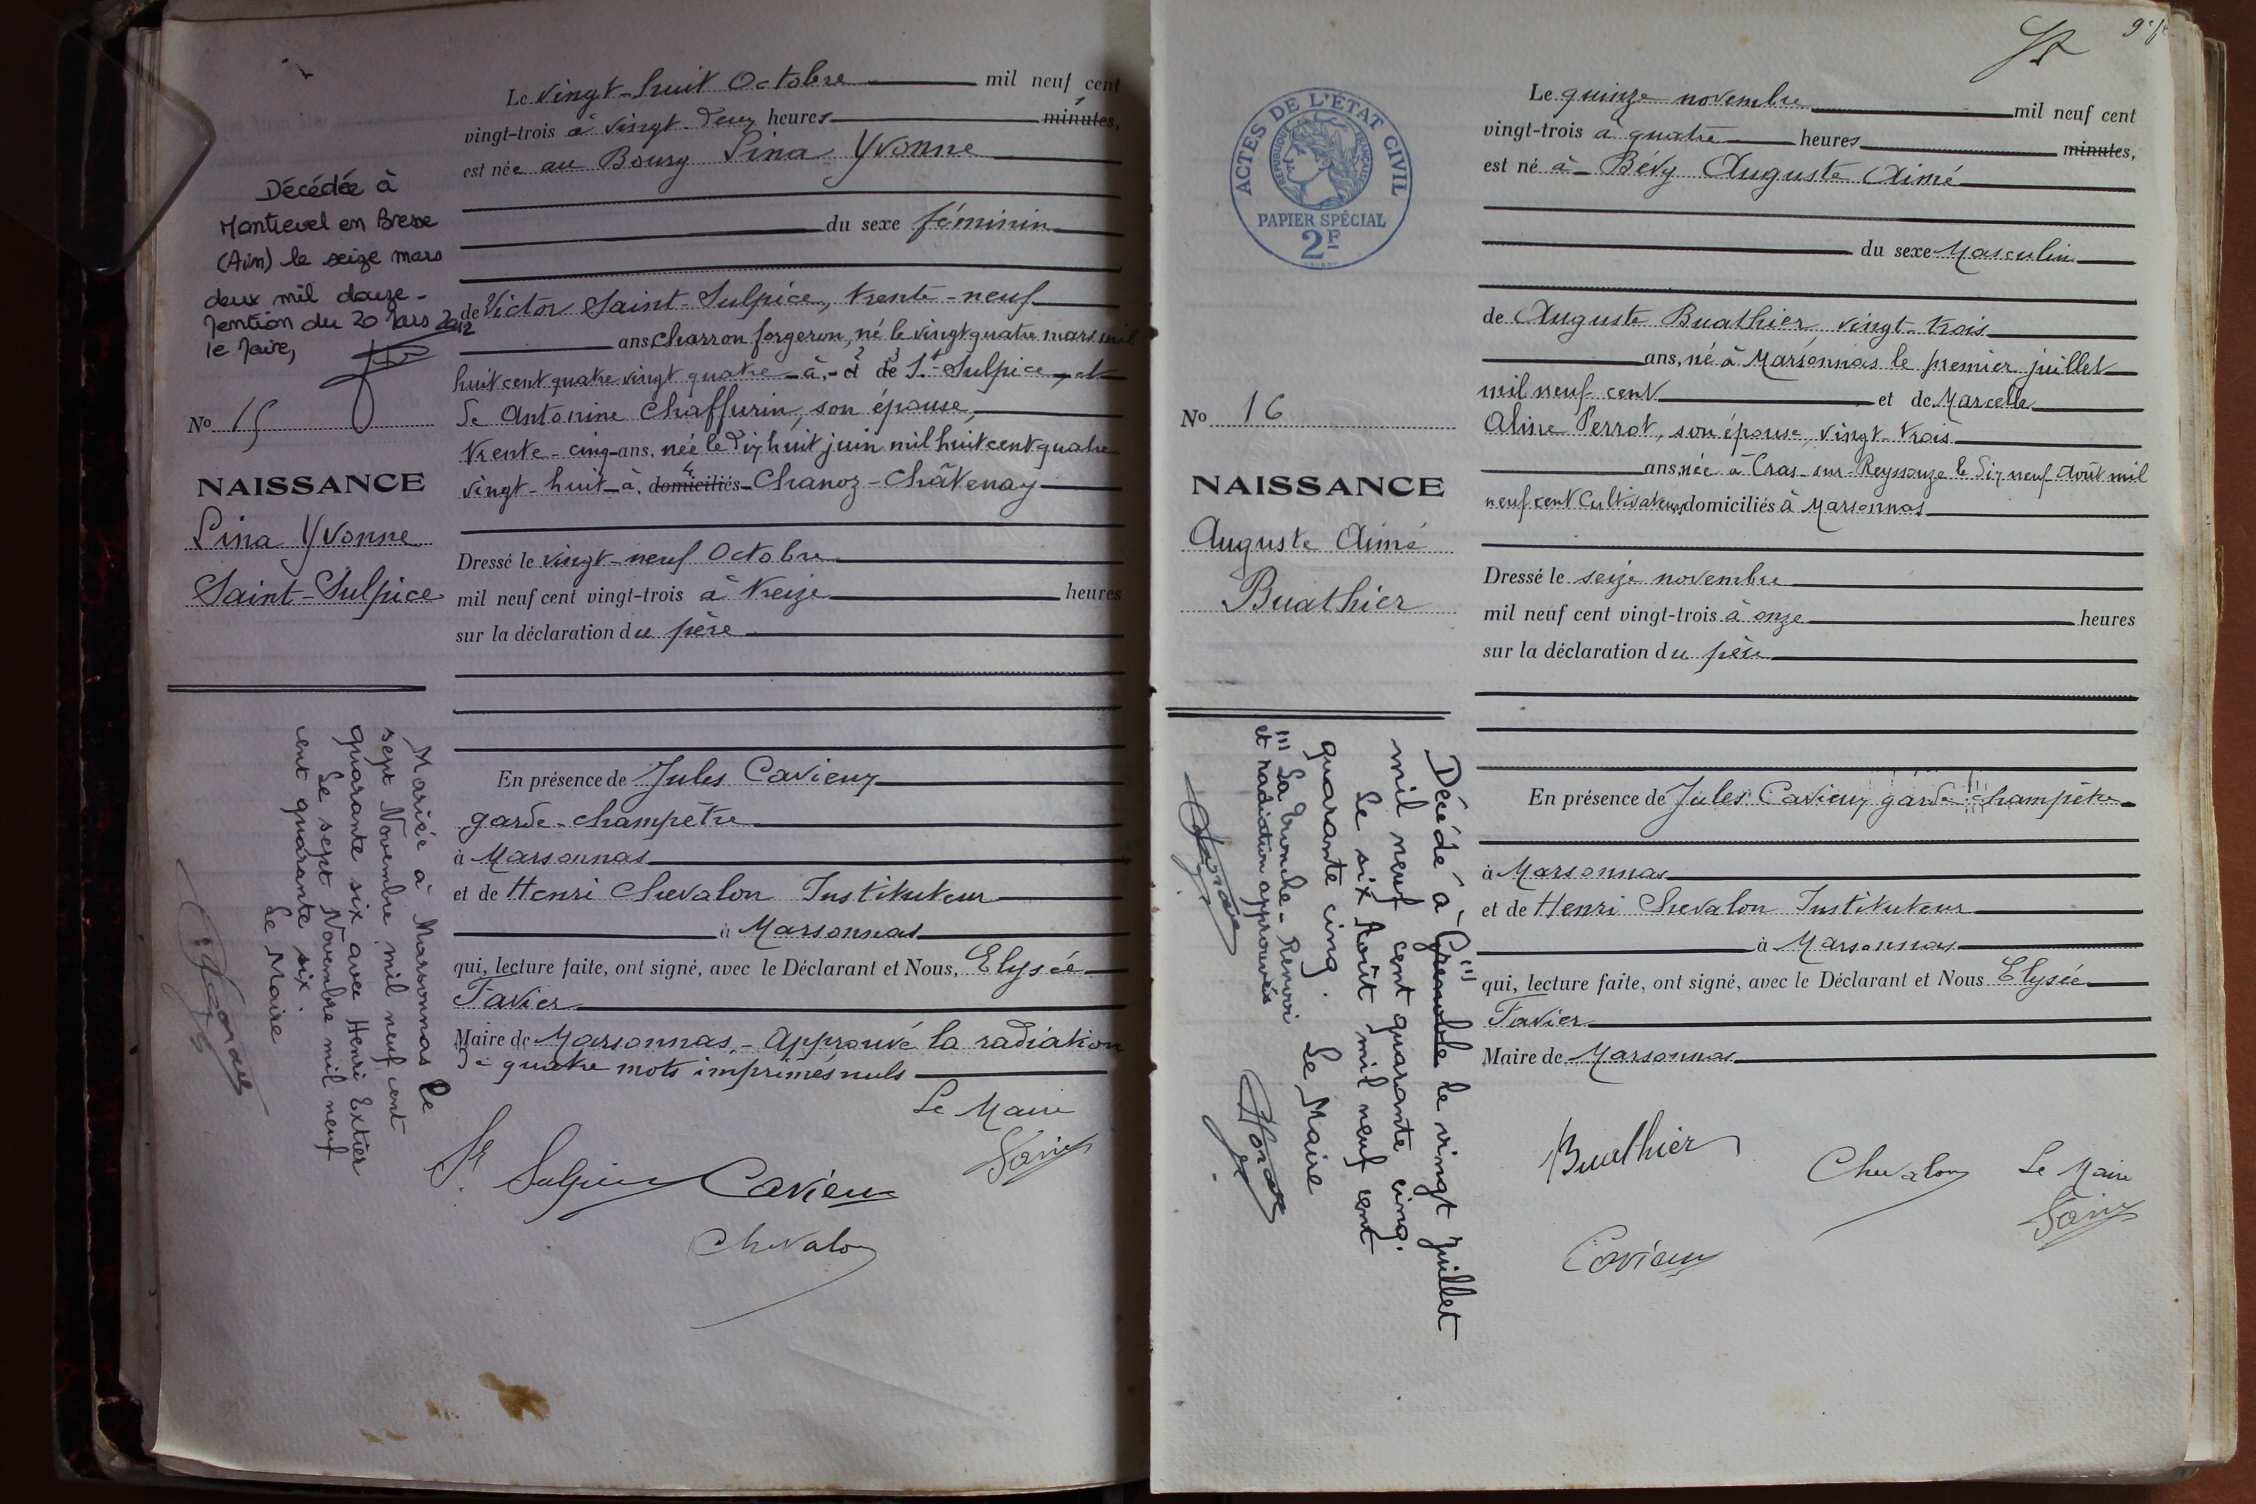 Le vingt-huit Octobre mil neuf cent
vingt-trois à vingt-deux heures minutes,
est née au Bourg Lina Yvonne
du sexe féminin
de Victor Saint-Sulpice, trente-neuf
ans, charron forgeron, né le vingt quatre mars mil
huit cent quatre vingt quatre à, de St-Sulpice, et
de Antonine Chaffurin, son épouse,
trente-cinq ans, née le dix huit juin mil huit cent quatre
vingt-huit à, domiciliés Chanoz-Châtenay
Dressé le vingt-neuf Octobre
mil neuf cent vingt-trois à treize heures
sur la déclaration du père
En présence de Jules Cavieux
garde-champêtre
à Marsonnas
et de Henri Chevalon Instituteur
à Marsonnas
qui, lecture faite, ont signé, avec le Déclarant et Nous, Elysée
Favier
Maire de Marsonnas, - Approuvé la radiation
de quatre mots imprimés nuls
Le Maire
St Sulpice Cavieux Favier
Chevalon
Décédée à
Montrevel en Bresse
(Ain) le seize mars
deux mil douze -
Mention du 20 Mars 2012
le Maire,
No 15
NAISSANCE
Lina Yvonne
Saint-Sulpice
Mariée à Marsonnas le
sept Novembre mil neuf cent
quarante six avec Henri Extier
Le sept Novembre mil neuf
cent quarante six.
Le Maire
9e f
Le quinze novembre mil neuf cent
vingt-trois à quatre heures minutes,
est né à Bévy Auguste Aimé
du sexe Masculin
de Auguste Buathier vingt-trois
ans, né à Marsonnas le premier juillet
mil neuf cent et de Marcelle
Aline Perrot, son épouse, vingt-trois
ans, née à Cras-sur-Reyssouze le dix neuf Août mil
neuf cent Cultivateurs, domiciliés à Marsonnas
Dressé le seize novembre
mil neuf cent vingt-trois à onze heures
sur la déclaration du père
En présence de Jules Cavieux garde champêtre
à Marsonnas
et de Henri Chevalon Instituteur
à Marsonnas
qui, lecture faite, ont signé, avec le Déclarant et Nous Elysée
Favier
Maire de Marsonnas
Buathier Chevalon Le Maire
Cavieux Favier
ACTES DE L'ÉTAT CIVIL
RÉPUBLIQUE FRANÇAISE
PAPIER SPÉCIAL
2F
No 16
NAISSANCE
Auguste Aimé
Buathier
Décédé à Grenoble (1) le vingt Juillet
mil neuf cent quarante cinq.
Le six Août mil neuf cent
quarante cinq. Le Maire
(1) La Tronche - Renvoi
et radiation approuvés